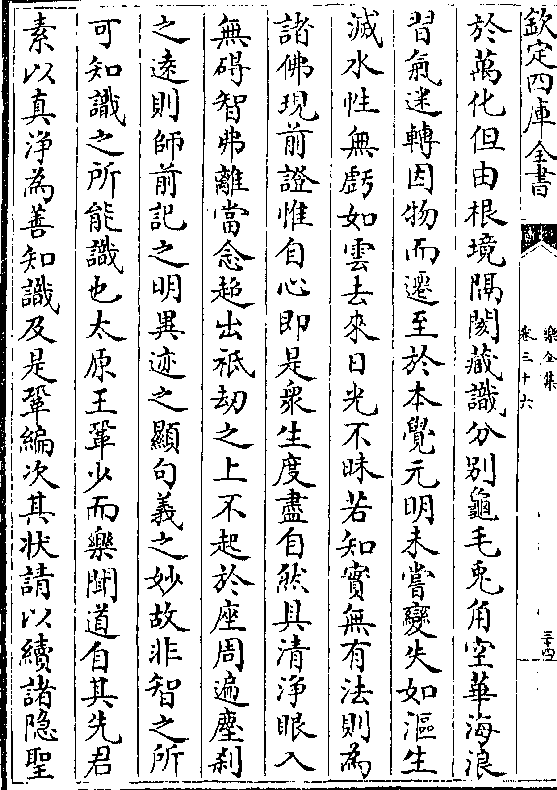 欽定四庫全書
樂全集
卷三十六
三十四
於萬化但由根境隔閡藏識分别龜毛兎角空華海浪
習氣迷轉因物而遷至於本覺元明未嘗變失如漚生
滅水性無虧如雲去來日光不昧若知實無有法則為
諸佛現前證惟自心即是衆生度盡自然具清淨眼入
無碍智弗離當念超出祇劫之上不起於座周遍塵刹
之遠則師前記之明異迹之顯句義之妙故非智之所
可知識之所能識也太原王鞏少而樂聞道自其先君
素以真淨為善知識及是鞏編次其状請以續諸隐聖